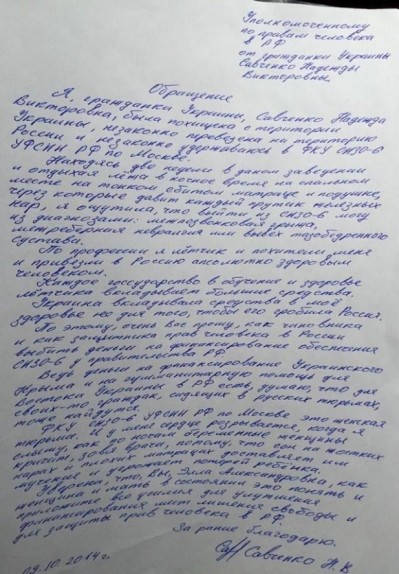 Уполномоченному
по правам человека
в РФ
от гражданки Украины
Савченко Надежды
Викторовны,
Обращение
Я, гражданка Украины, Савченко Надежда
Викторовна, была похищена с територии
Украины, незаконно переведена на територию
России и незаконно удерживаюсь в ФКУ СИЗО-6
УФСИН РФ по Москве.
Находясь две недели в даном заведении
и отдыхая лёжа в ночное время на спальном
месте на тонком сбитом матраце и подушке,
через которые давит каждый прутик железных
нар, я ощутила, что выйти из СИЗО-6 могу
из диагнозами: межпозвонковая грыжа,
межреберная невралгия или вывих тазобедренного
сустава.
По професии я лётчик и похители меня
и привезли в Россию абсолютно здоровым
человеком.
Каждое государство в обучение и здоровье
лётчиков вкладывает большие средства.
Украина вкладывала средства в моё
здоровье не для того, чтобы его гробила Россия.
По этому, очень Вас прошу, как чиновника
и как защитника прав человека в России
выбить деньги на финансирование обеспечения
СИЗО-6 у правительства РФ.
Ведь деньги на финансирование Украинского
Крыма и на гуманитарную помощь для
Востока Украины в РФ есть, думаю, что для
своих-то граждан, сидящих в русских тюрьмах,
тоже найдутся.
ФКУ СИЗО-6 УФСИН РФ по Москве это женская
тюрьма. И у меня сердце розрывается, когда я
слышу, как по ночам беременные женщины
кричат, зовя врача, потому, что сон на жостких
нарах и плохие матрацы доставляют им
мучение и угрожают потерей ребёнка.
Уверена, что, Вы, Элла Александровна, как
женщина и мать в состоянии это понять и
приложите все усилия для улутшения
финансирования мест лишения свободы и
для защиты прав человека в РФ.
За рание благодарю.
Савченко Н. В.
09.10.2014 г.